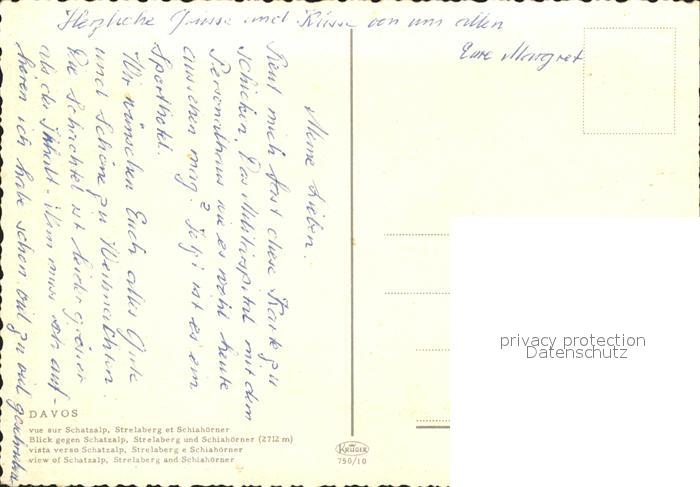 Meine Lieben.
Reut mich fast diese Karte zu
schicken. Das Militärspital mit dem
Personalhaus wie es wohl heute
aussehen mag? Jetzt ist es ein
Sporthotel.
Wir wünschen Euch alles Gute
und Schöne zu Weihnachten.
Die Schachtel ist leider grösser
als der Inhalt. Nun muss ich auf-
hören ich habe schon viel zu viel geschrieben
Herzliche Grüsse und Küsse von uns allen
Eure Margret
DAVOS
vue sur Schatzalp, Strelaberg et Schiahörner
Blick gegen Schatzalp, Strelaberg und Schiahörner (2712 m)
vista verso Schatzalp, Strelaberg e Schiahörner
view of Schatzalp, Strelaberg and Schiahörner
KRÜGER
750/10
privacy protection
Datenschutz